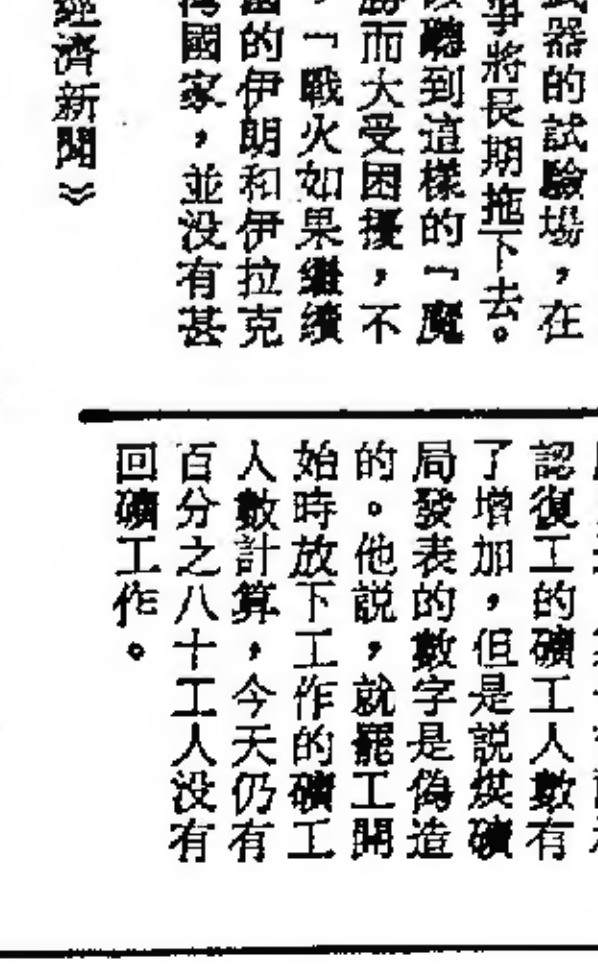 器的試驗場，在
爭將長期拖下去。
聽到這樣的「魔
勝而大受困擾，不
，「戰火如果繼續
的伊朗和伊拉克
灣國家，並没有甚
經濟新聞》
認復工的礦工人數有
了增加，但是説煤礦
局發表的數字是偽造
的。他説，就罷工開
始時放下工作的礦工
人數計算，今天仍有
百分之八十工人没有
回礦工作。